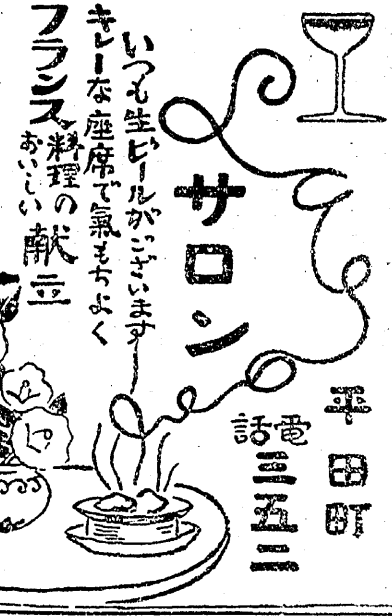 サロン
平田町
電話
三五二
いつも生ビールがございます
キレーな座席で氣もちよく
フランス料理の
おいしい献立